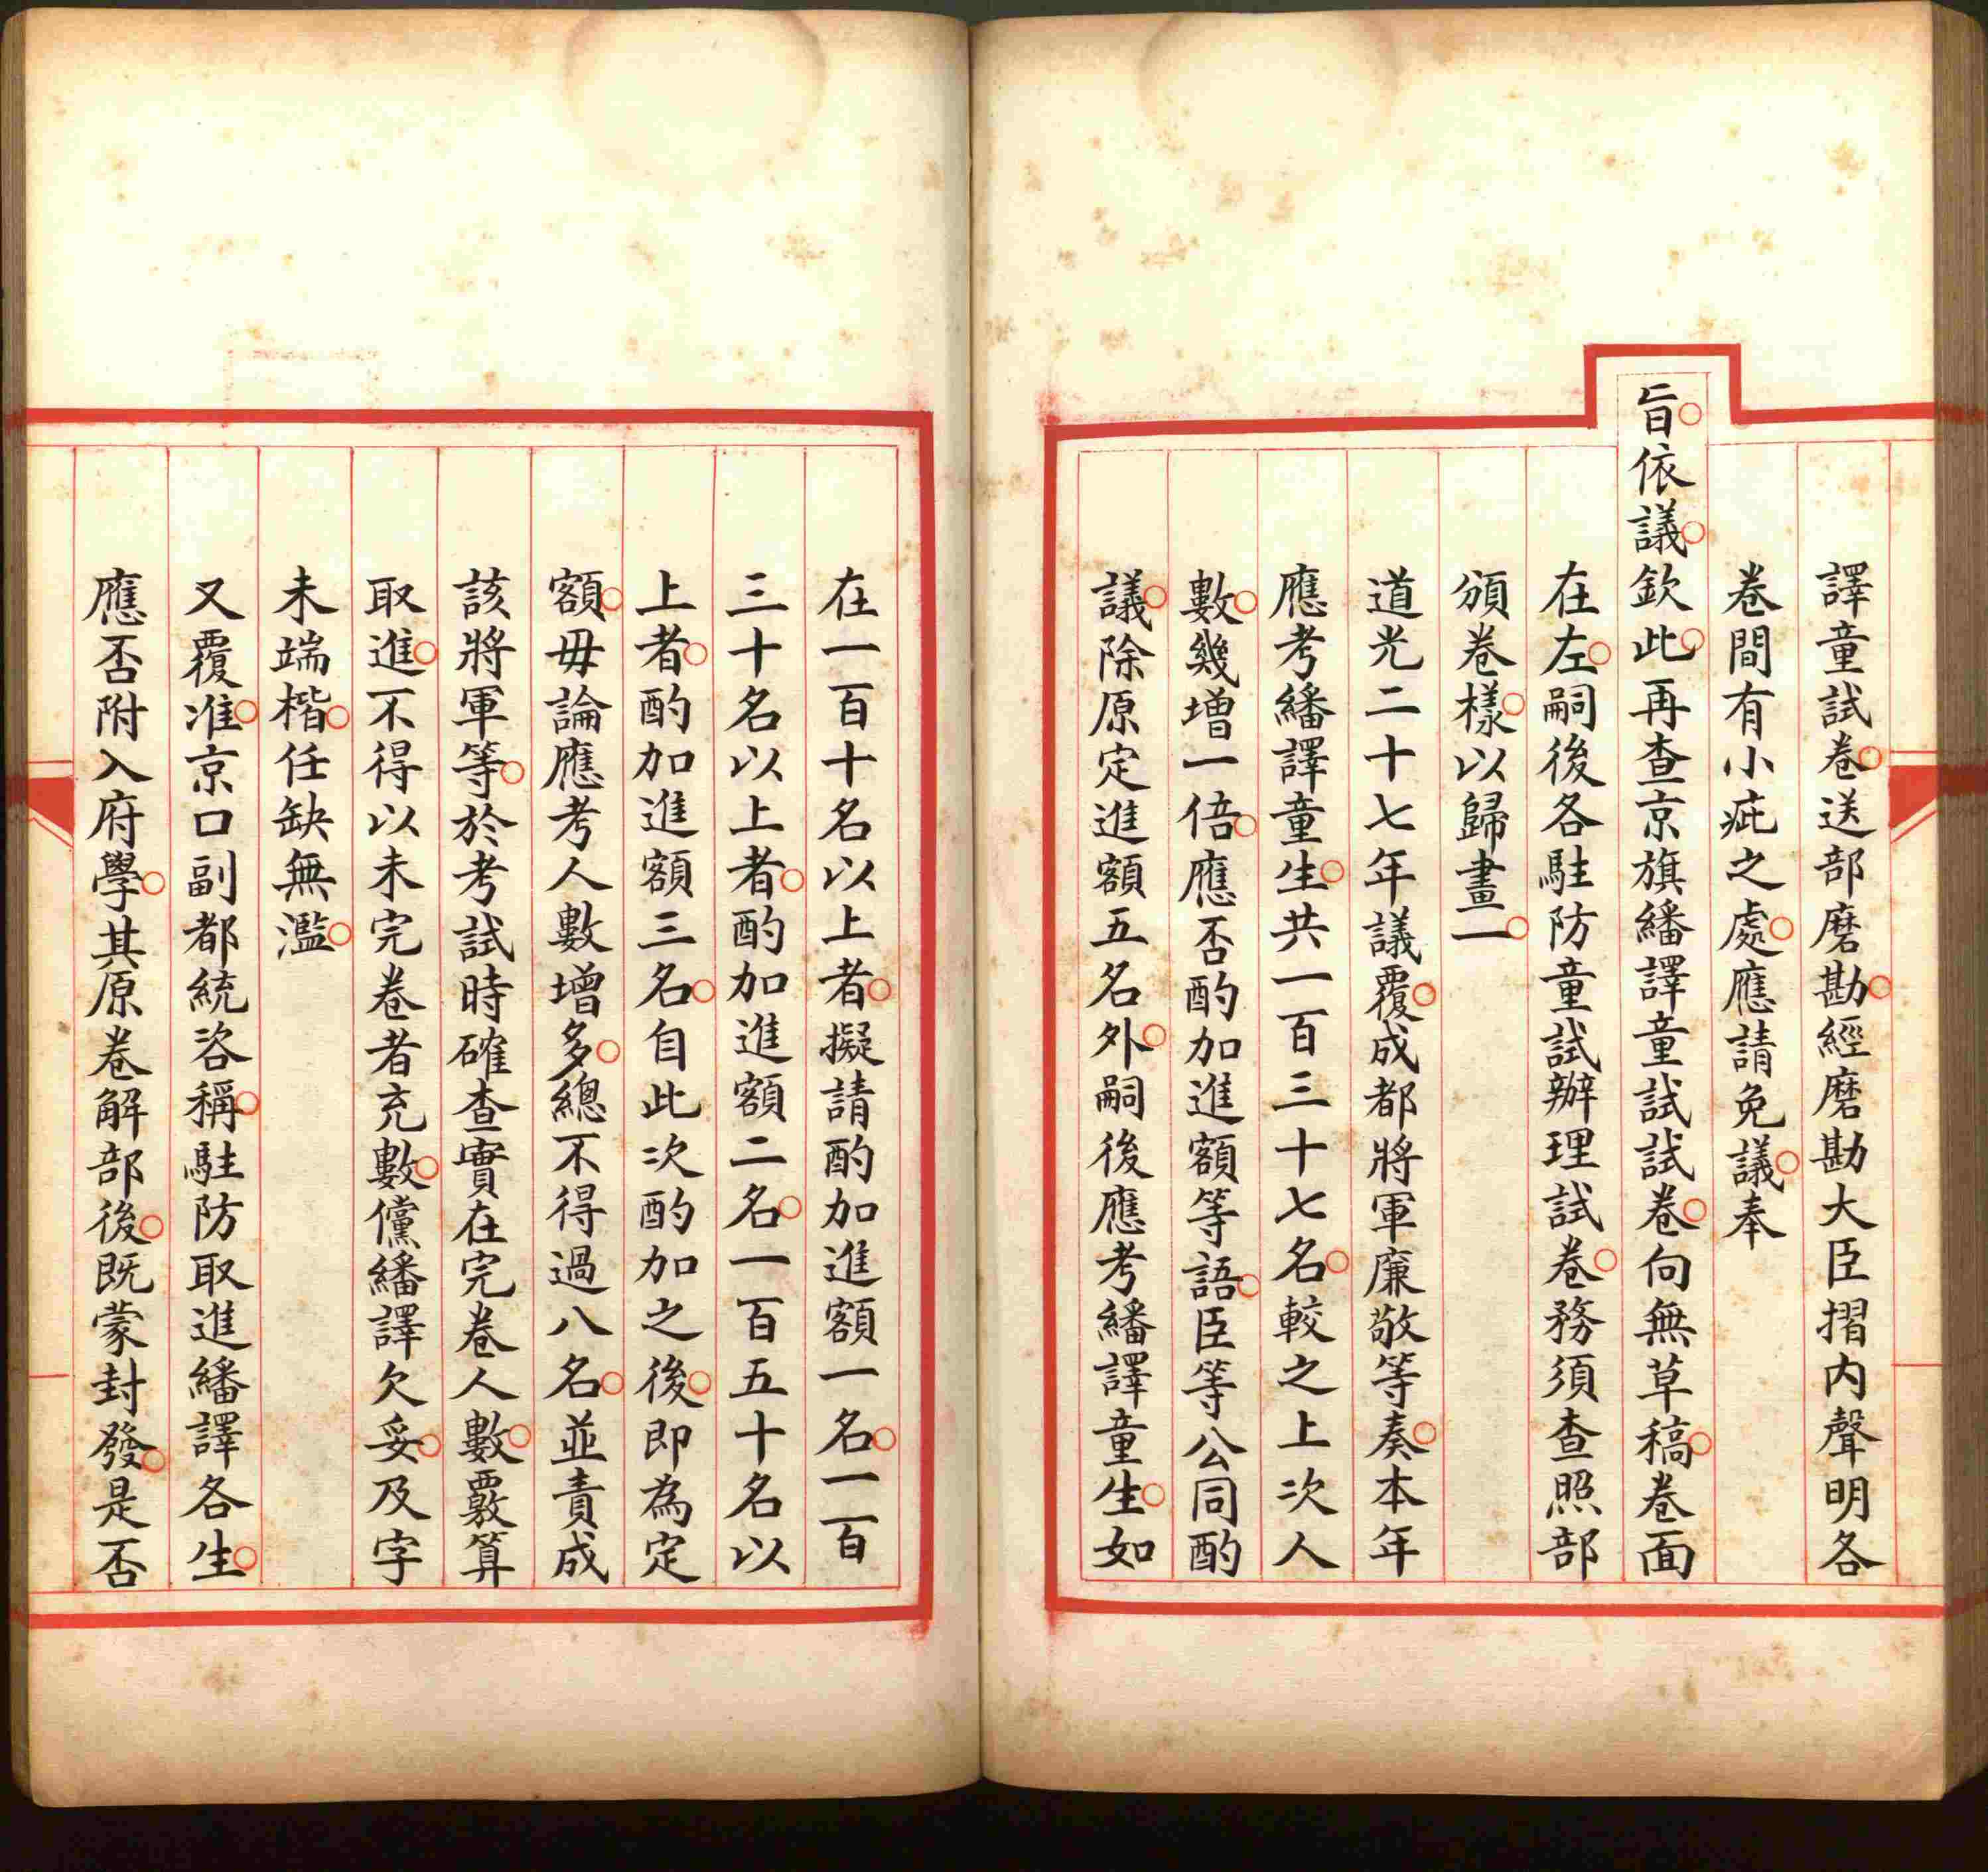 譯童試卷送部磨勘經磨勘大臣摺内聲明各
卷間有小疵之處應請免議奉
旨依議欽此再查京旗繙譯童試試卷向無草稿卷面
在左嗣後各駐防童試辦理試卷務須查照部
頒卷樣以歸畫一
道光二十七年議覆成都將軍廉敬等奏本年
應考繙譯童生共一百三十七名較之上次人
數幾增一倍應否酌加進額等語臣等公同酌
議除原定進額五名外嗣後應考繙譯童生如
在一百十名以上者擬請酌加進額一名一百
三十名以上者酌加進額二名一百五十名以
上者酌加進額三名自此次酌加之後即為定
額毋論應考人數增多總不得過八名並責成
該將軍等於考試時確查實在完卷人數覈算
取進不得以未完卷者充數儻繙譯欠妥及字
未端楷任缺無濫
又覆准京口副都統咨稱駐防取進繙譯各生
應否附入府學其原卷解部後既蒙封發是否